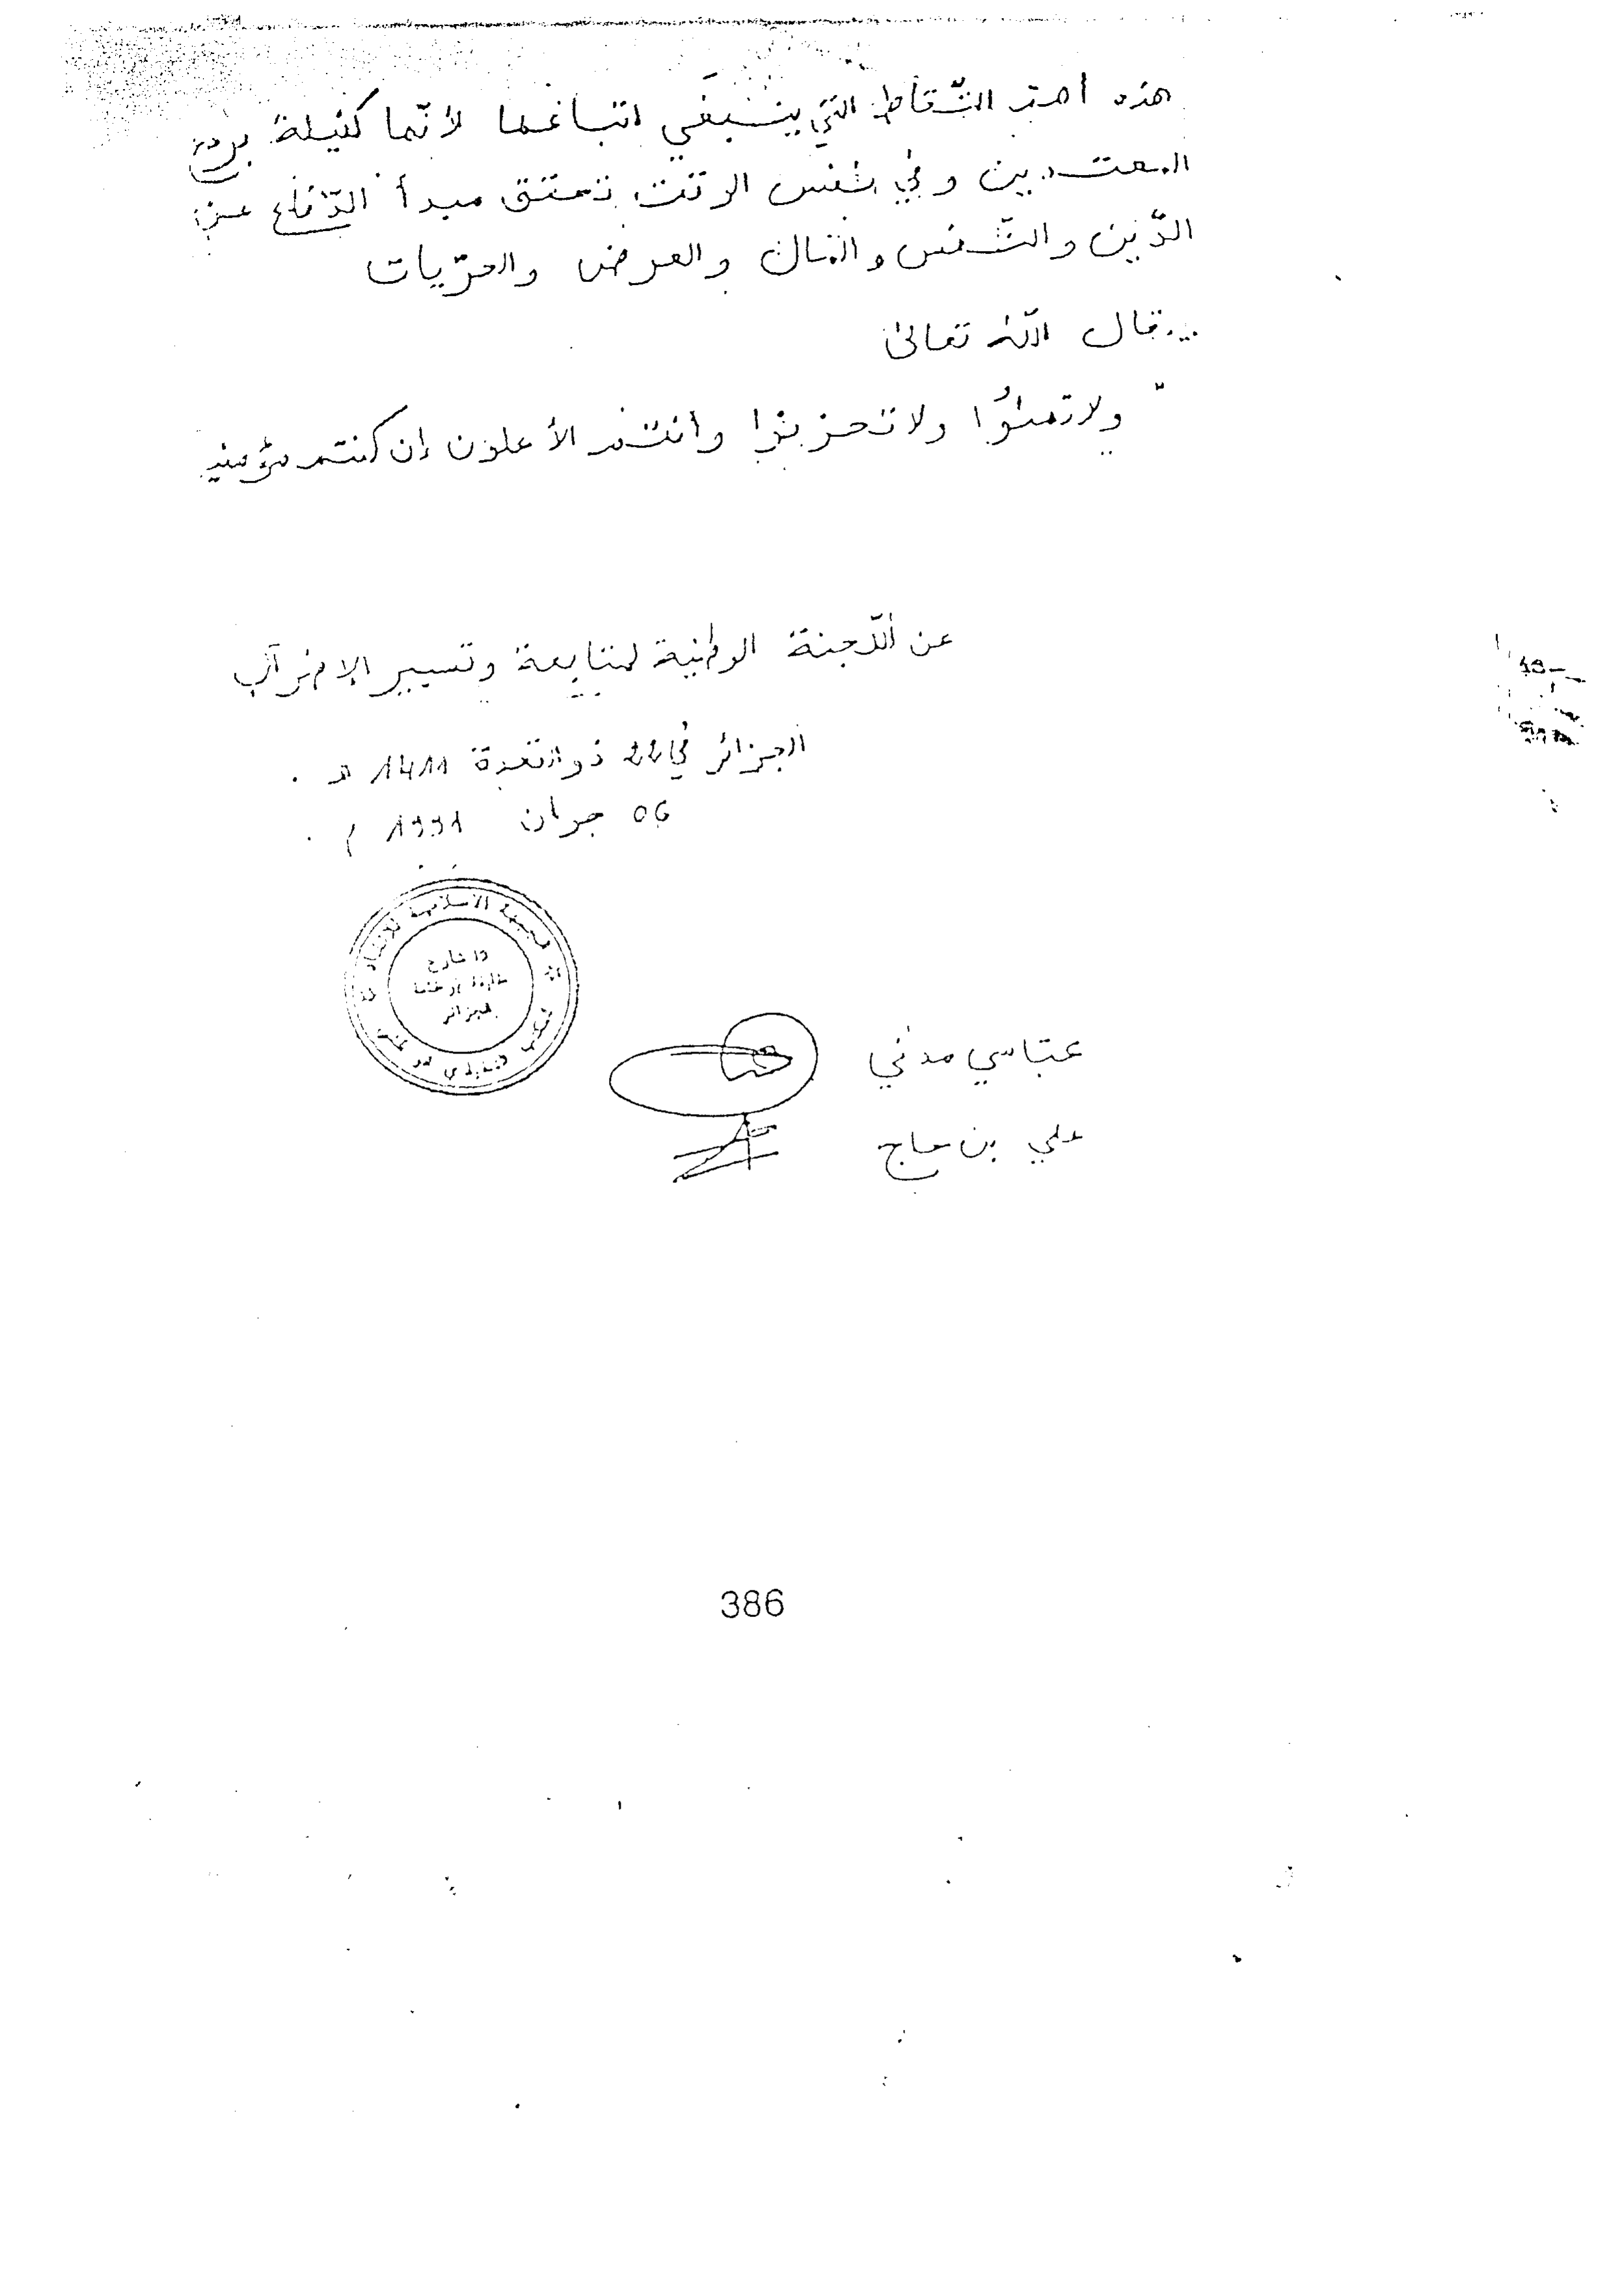 هذه أهم النّقاط التي ينبغي اتباعها لأنّها كفيلة بردع
المعتدين وفي نفس الوقت تحقق مبدأ الدّفاع عن
الدّين والنّفس والمال والعرض والحرّيات
قال الله تعالى
" ولا تهنُوا ولا تحزنوا وأنتم الأعلون إن كنتم مؤمنين
عن اللّجنة الوطنية لمتابعة وتسيير الإضراب
الجزائر في 22 ذو القعدة 1411 هـ .
06 جوان 1991 م .
الجبهة الاسلامية للانقاذ
شارع
الجزائر
عبّاسي مدني
علي بن حاج
386